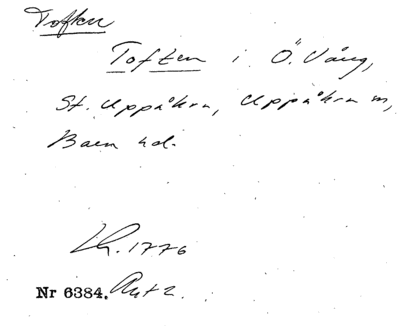 Toften
Toften i Ö. Vång,
St. Uppåkra, Uppåkra sn,
Bara hd.
1776
Nr 6384.